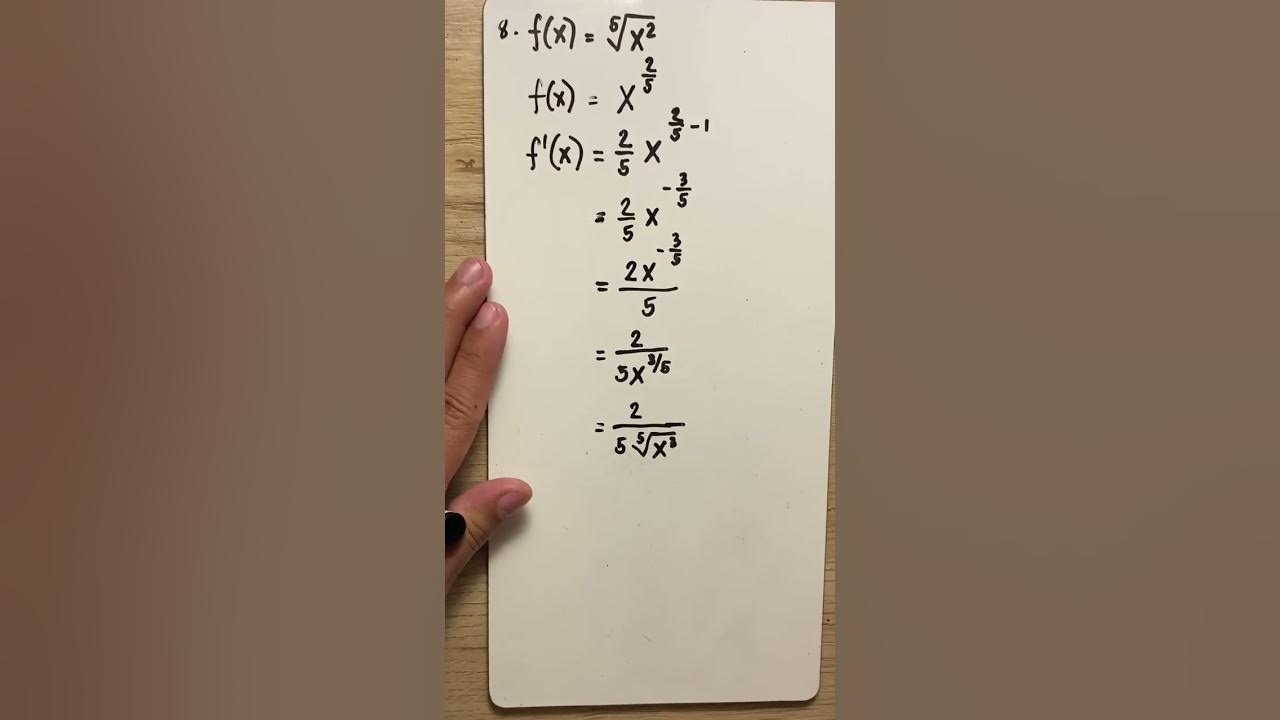 8. f(x) = ⁵√x²
f(x) = x^(2/5)
f'(x) = 2/5 x^(2/5 - 1)
= 2/5 x^(-3/5)
= 2x^(-3/5) / 5
= 2 / 5x^(3/5)
= 2 / 5 ⁵√x³